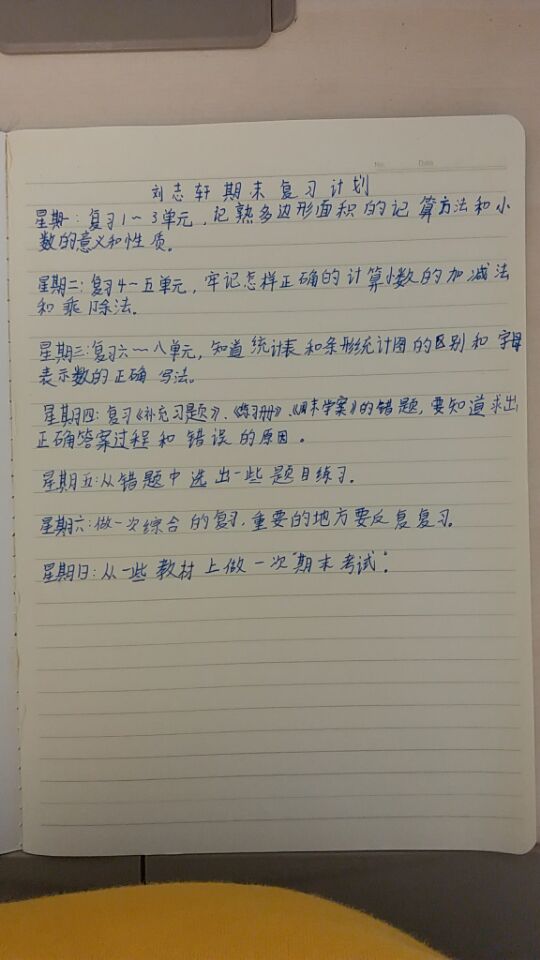 No. Date
刘志轩期末复习计划
星期一:复习1~3单元,记熟多边形面积的记算方法和小
数的意义和性质。
星期二:复习4~五单元,牢记怎样正确的计算小数的加减法
和乘除法.
星期三:复习六~八单元,知道统计表和条形统计图的区别和字母
表示数的正确写法。
星期四:复习《补充习题》、《练习册》、《周末学案》的错题,要知道求出
正确答案过程和错误的原因。
星期五:从错题中选出一些题目练习.
星期六:做一次综合的复习,重要的地方要反复复习。
星期日:从一些教材上做一次“期末考试”.